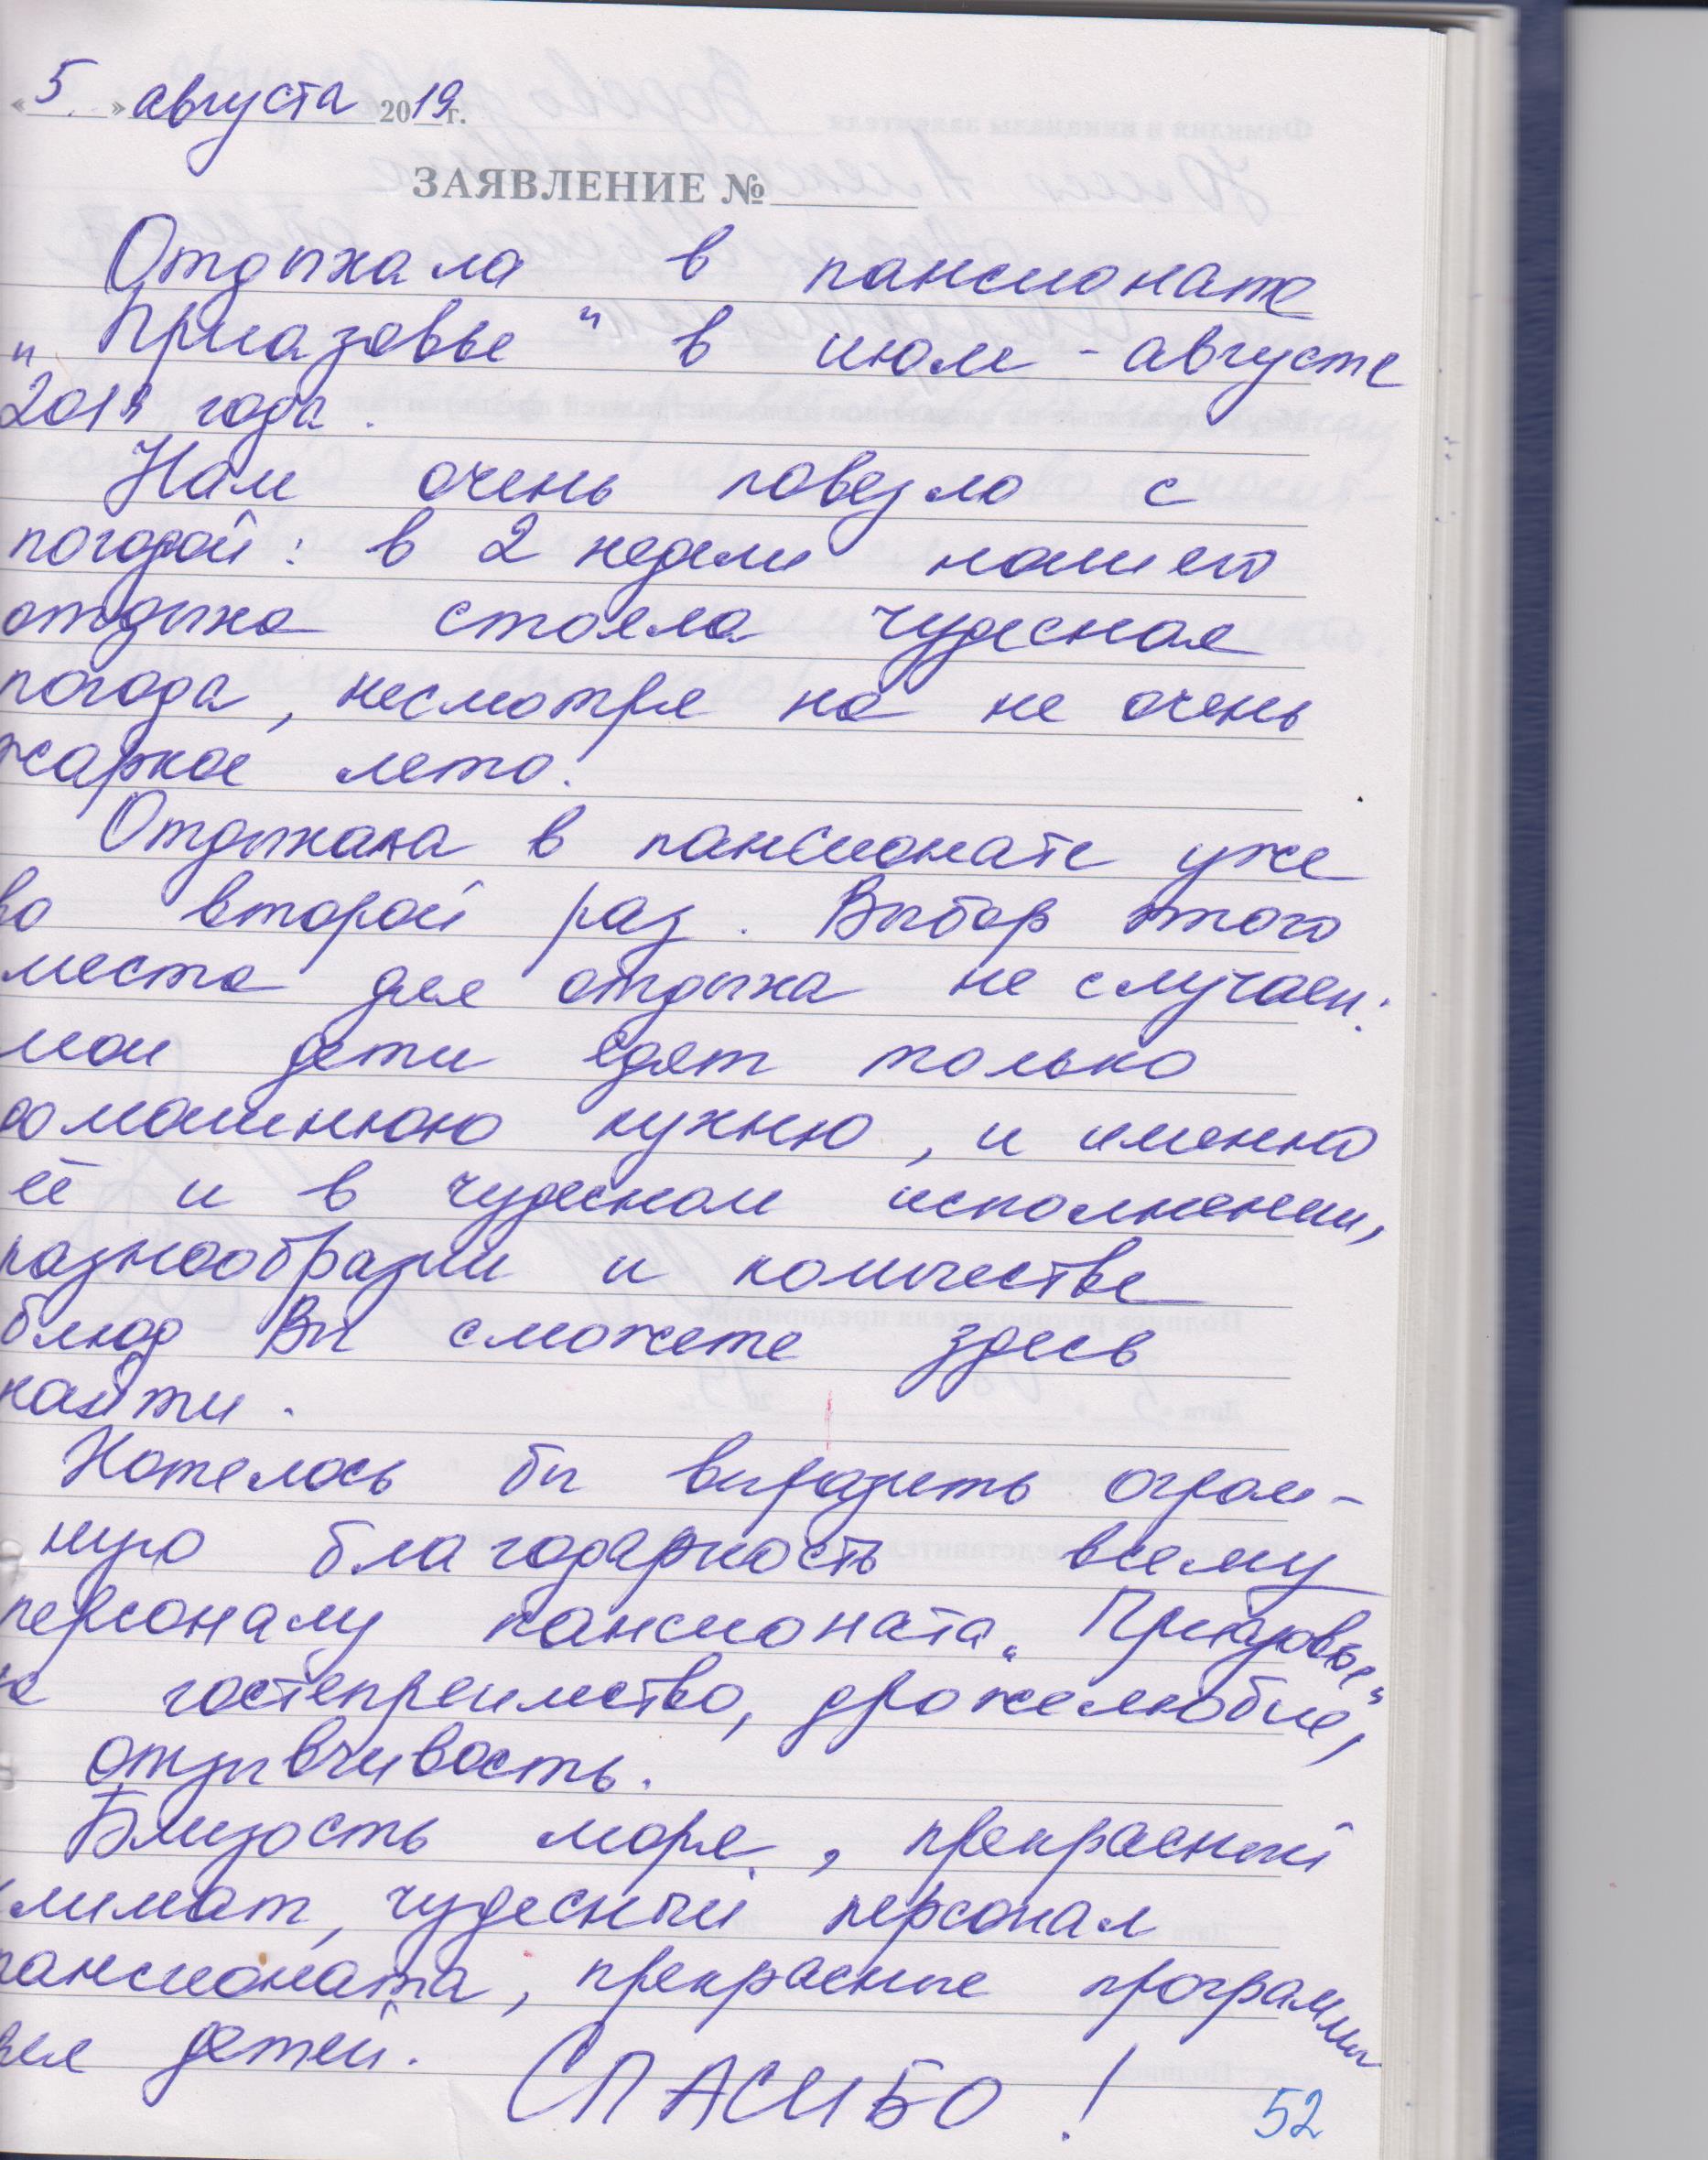 « 5 » августа 2019 г.
ЗАЯВЛЕНИЕ №
Отдыхала в пансионате
„Приазовье" в июле - августе
2019 года.
Нам очень повезло с
погодой: в 2 недели нашего
отдыха стояла чудесная
погода, несмотря на не очень
жаркое лето.
Отдыхала в пансионате уже
во второй раз. Выбор этого
места для отдыха не случаен:
мои дети едят только
домашнюю кухню, и именно
её и в чудесном исполнении,
разнообразии и количестве
блюд Вы сможете здесь
найти.
Хотелось бы выразить огром-
ную благодарность всему
персоналу пансионата „Приазовье"
гостеприимство, дружелюбие,
отзывчивость.
Близость моря, прекрасный
климат, чудесный персонал
пансионата, прекрасные программы
для детей. СПАСИБО !
52